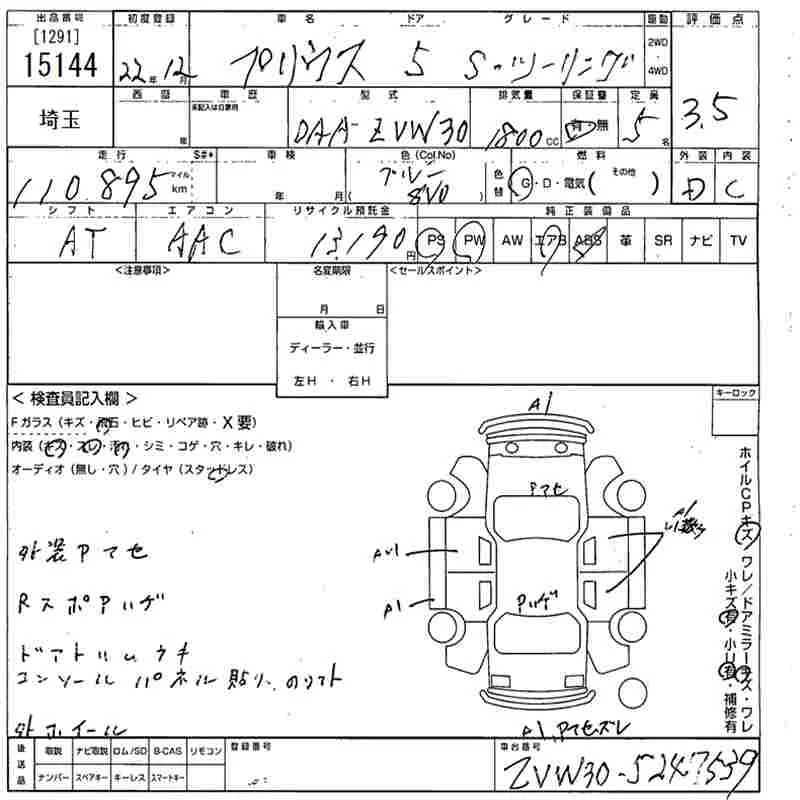 出品番号 初度登録 車名 ドア グレード 駆動 評価点
[1291]
15144 22年12月 プリウス 5 S.ツーリング 2WD・4WD 3.5
埼玉 西暦 年 車歴 未記入は自家用 型式 DAA-ZVW30 排気量 1800cc 保証書 有・無 定員 5名
走行 S#* 車検 色(Col.No) 色替 燃料 外装 内装
110,895 マイル km 年 月 8V0 G・D・電気( その他 ) D C
シフト エアコン リサイクル預託金 純正装備品
AT AAC 13,190円 PS PW AW エアB ABS 革 SR ナビ TV
<注意事項> 名変期限 <セールスポイント>
月 日
輸入車
ディーラー・並行
左H ・ 右H
<検査員記入欄> キーロック
Fガラス(キズ・飛石・ヒビ・リペア跡・X要)
内装(キズ・スレ・汚れ・シミ・コゲ・穴・キレ・破れ)
オーディオ(無し・穴)/タイヤ(スタッドレス)
A1
Pアセ
AU1
A1
A1
Pハゲ
A1,Pアセ,ズレ
ホイルCPキズ・ワレ/ドアミラーキズ・ワレ
小キズ有・小U有・補修有
外装Pアセ
RスポPハゲ
ドアトリムウキ
コンソールパネル貼り
外ホイール
後送品 取説 ナビ取説 ロム/SD B-CAS リモコン 登録番号 車台番号
ナンバー スペアキー キーレス スマートキー ZVW30-5247539